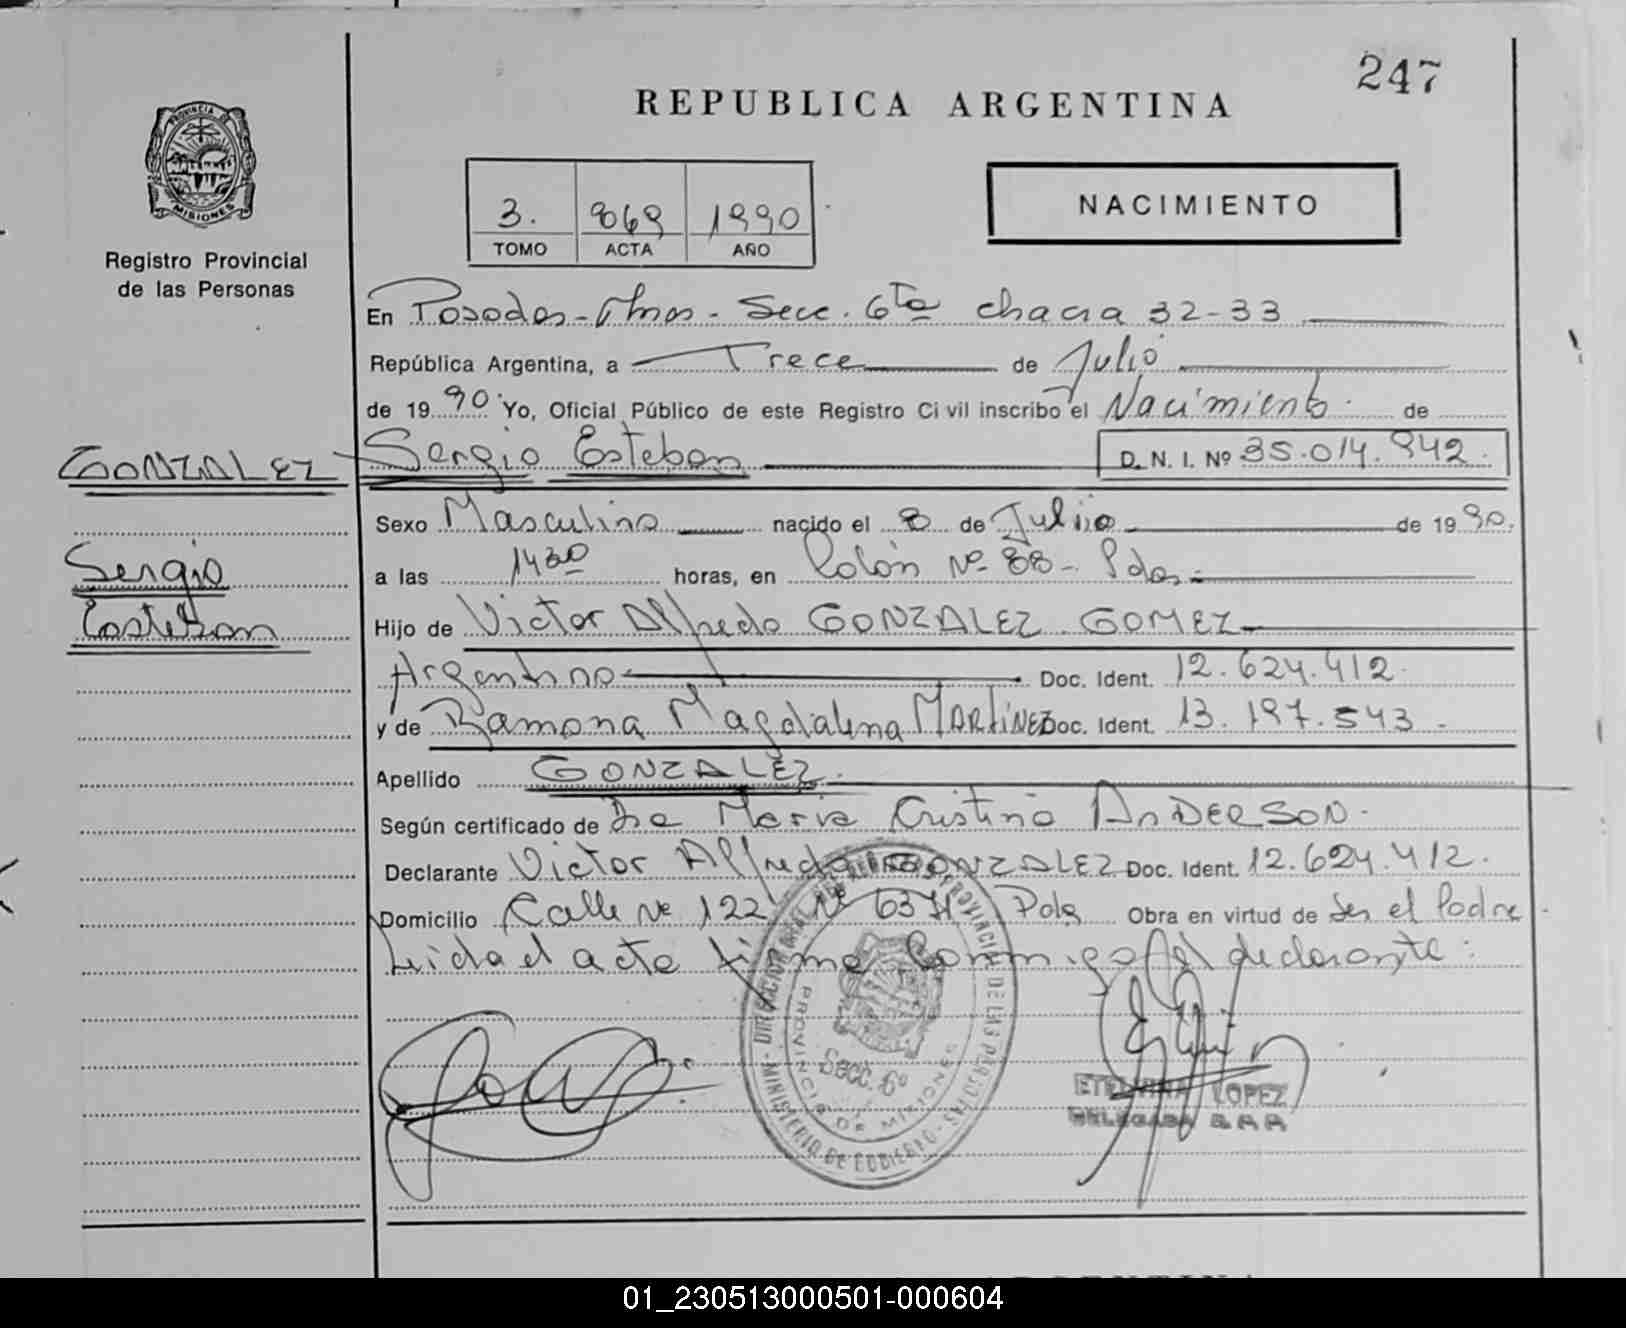 247
REPUBLICA ARGENTINA
PROVINCIA DE MISIONES
Registro Provincial
de las Personas
3. 869 1990
TOMO ACTA AÑO
NACIMIENTO
En Posadas - Mnes - Secc. 6ta chacra 32-33
República Argentina, a Trece de Julio
de 1990 Yo, Oficial Público de este Registro Civil inscribo el Nacimiento de
GONZALEZ Sergio Esteban D. N. I. Nº 35.014.942
Sexo Masculino nacido el 8 de Julio de 1990.
Sergio
a las 1430 horas, en Colón Nº 88 - Pdas.
Esteban
Hijo de Victor Alfredo GONZALEZ GOMEZ
Argentino Doc. Ident. 12.624.412.
y de Ramona Magdalena MARTINEZ Doc. Ident. 13.197.543.
Apellido GONZALEZ.
Según certificado de Dra Maria Cristina ANDERSON.
Declarante Victor Alfredo GONZALEZ Doc. Ident. 12.624.412.
Domicilio Calle Nº 122 Nº 6371 Pdas Obra en virtud de Ser el Padre
Leida el acta firma Conmigo el declarante:
MINISTERIO DE GOBIERNO - DIRECCION GRAL. DEL REGISTRO PROVINCIAL DE LAS PERSONAS
PROVINCIA DE MISIONES
Secc. 6º
ETELVINA LOPEZ
DELEGADA
01_230513000501-000604